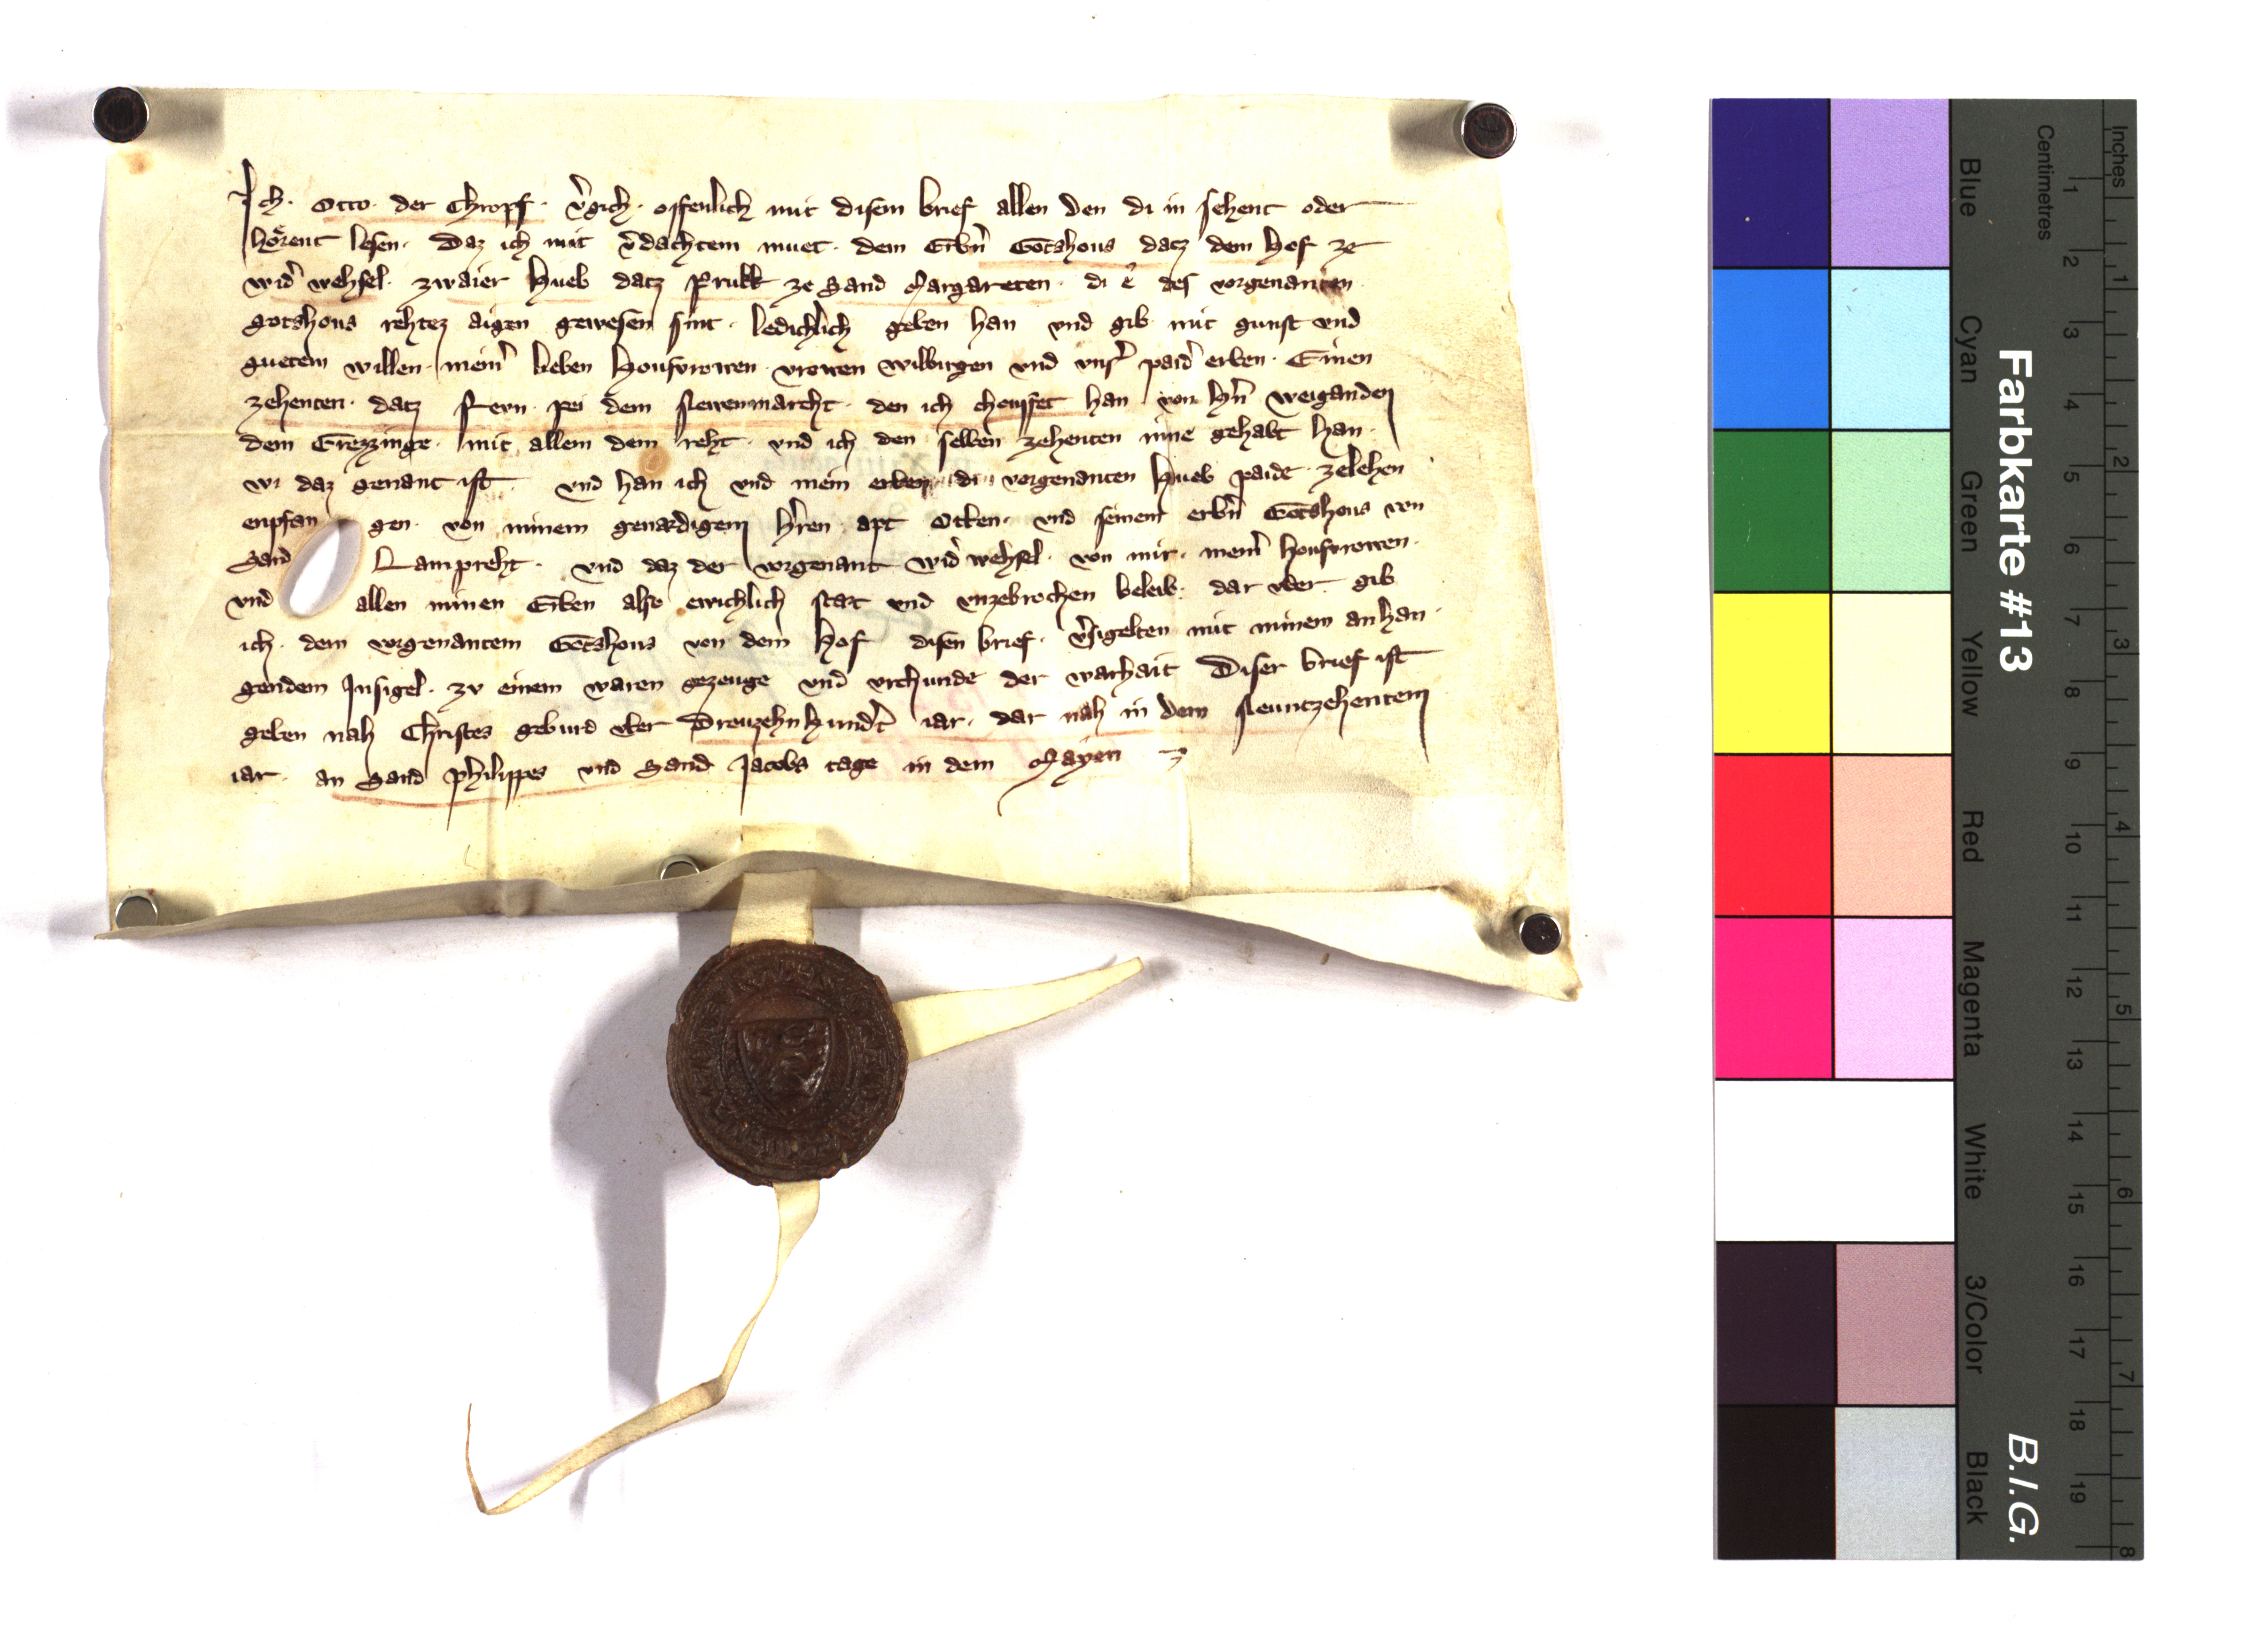 Ich · Otto · der Chropf · v̾gich · offenlich mit disem brief allen den di in sehent oder
hoͤrent lesen · Daz ich mit v̾dachtem muet · dem Erbn̄ Gotshous datz dem Hof ze
wid̾ wehsel · zwaier Hueb datz Prukk ze Sand Margareten · di e des vorgenanten
gotshous rehtez aigen gewesen sint · ledichlich geben han vnd gib mit gunst vnd
guetem willen · meinr̄ lieben Housvrowen · vrowen wilbirgen vnd vnsr̄ paid̾ erben · Einen
zehenten · datz pei dem Newenmarcht · den ich chouffet han von Hn̄ Weiganden
dem mit allem dem reht · vnd ich den selben zehenten inne gehabt han ·
wi daz genant ist vnd han ich vnd mein erben di vorgenanten Hueb paide · zelehen
enpfan gen · von minem genaedigem Hr̄ren apt Otten · vnd seinem erbn̄ Gotshous von
Sand Lampreht · vnd daz der vorgenant wid̾ wehsel · von mir · meinr̄ housvrowen ·
vnd allen minen Erben also ewichlich staet vnd vnzebrochen beleib · dar vber · gib
ich · dem vorgenantem Gotshous von dem Hof disen brief · v̾sigelten mit minem anhan ·
gendem Insigel · zv einem waren gezeuge vnd vrchunde der warhait Diser brief ist
geben nah Christes geburd vber Dreuzehn Hund̾t iar · dar nah in dem Neuntzehentem
iar · an Sand Philippes vnd Sand Jacobs tage in dem Mayen
Farbkarte #13
B.I.G.
Blue Cyan Green Yellow Red Magenta White 3/Color Black
Centimetres 1 2 3 4 5 6 7 8 9 10 11 12 13 14 15 16 17 18 19
Inches 1 2 3 4 5 6 7 8